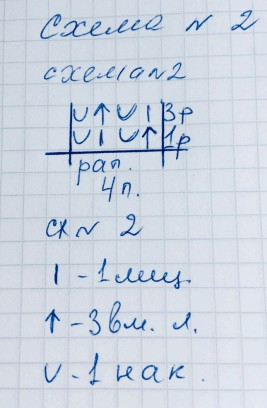 Схема N 2
схема N2
∪ ↑ ∪ I 3р
∪ I ∪ ↑ 1р
рап.
4п.
сх N 2
I - 1 лиц.
↑ - 3 вм. л.
∪ - 1 нак.